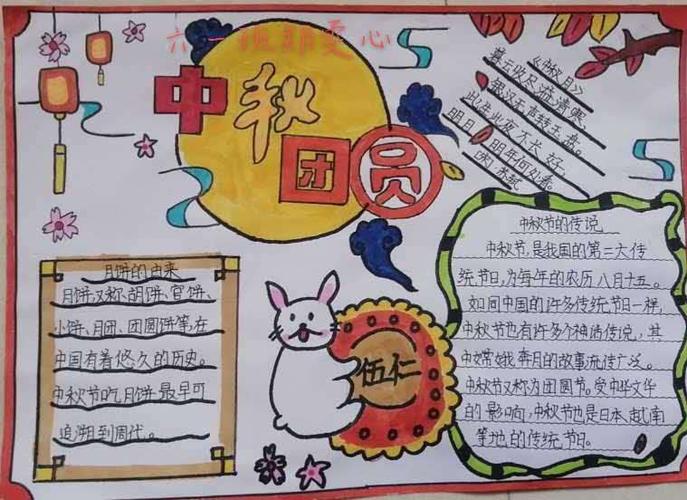 六一班
中秋
团圆
《中秋月》
暮云收尽 清寒,
银汉无声转玉盘。
此生此夜不长好,
明月明年何处看。
(宋)苏轼
月饼的由来
月饼,又称胡饼、宫饼、
小饼、月团、团圆饼等,在
中国有着悠久的历史。
中秋节吃月饼最早可
追溯到周代。
伍仁
中秋节的传说
中秋节,是我国的第二大传
统节日,为每年的农历八月十五。
如同中国的许多传统节日一样,
中秋节也有许多个神话传说,其
中嫦娥奔月的故事流传广泛。
中秋节又称为团圆节。受中华文华
的影响,中秋节也是日本、越南
等地的传统节日。